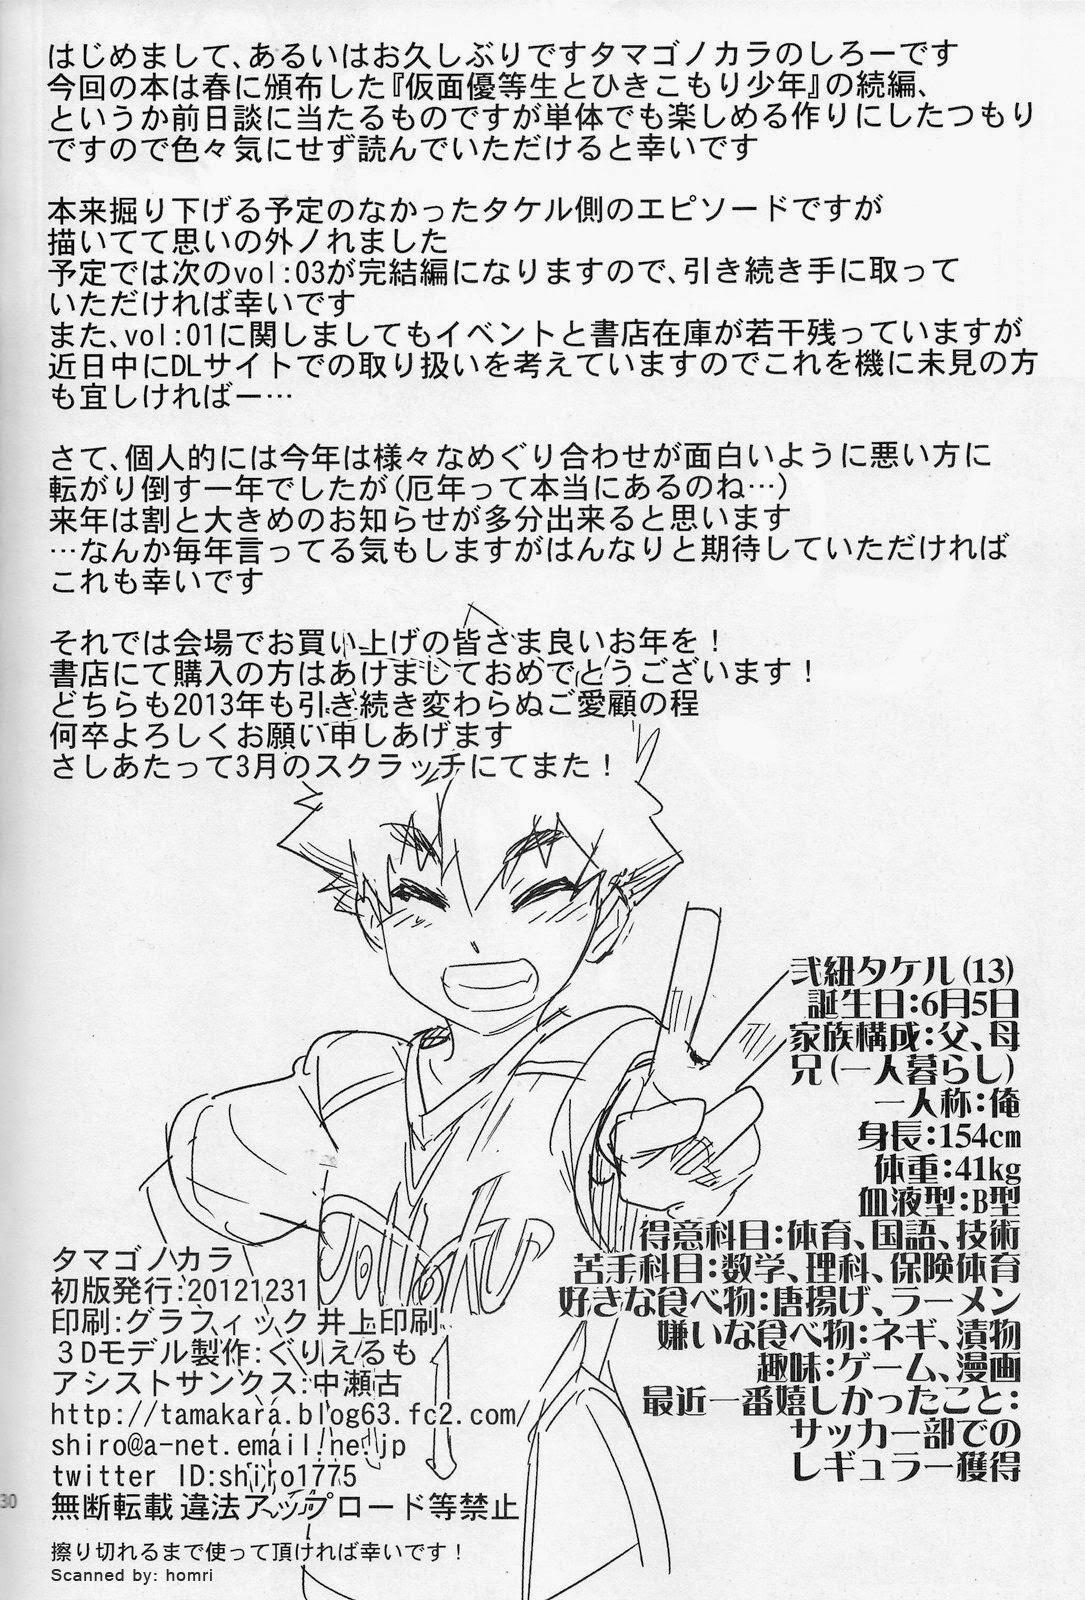 はじめまして、あるいはお久しぶりですタマゴノカラのしろーです
今回の本は春に頒布した『仮面優等生とひきこもり少年』の続編、
というか前日談に当たるものですが単体でも楽しめる作りにしたつもり
ですので色々気にせず読んでいただけると幸いです
本来掘り下げる予定のなかったタケル側のエピソードですが
描いてて思いの外ノれました
予定では次のvol:03が完結編になりますので、引き続き手に取って
いただければ幸いです
また、vol:01に関しましてもイベントと書店在庫が若干残っていますが
近日中にDLサイトでの取り扱いを考えていますのでこれを機に未見の方
も宜しければー…
さて、個人的には今年は様々なめぐり合わせが面白いように悪い方に
転がり倒す一年でしたが(厄年って本当にあるのね…)
来年は割と大きめのお知らせが多分出来ると思います
…なんか毎年言ってる気もしますがはんなりと期待していただければ
これも幸いです
それでは会場でお買い上げの皆さま良いお年を！
書店にて購入の方はあけましておめでとうございます！
どちらも2013年も引き続き変わらぬご愛顧の程
何卒よろしくお願い申しあげます
さしあたって3月のスクラッチにてまた！
弐紐タケル(13)
誕生日:6月5日
家族構成:父、母
兄(一人暮らし)
一人称:俺
身長:154cm
体重:41kg
血液型:B型
得意科目:体育、国語、技術
苦手科目:数学、理科、保険体育
好きな食べ物:唐揚げ、ラーメン
嫌いな食べ物:ネギ、漬物
趣味:ゲーム、漫画
最近一番嬉しかったこと:
サッカー部での
レギュラー獲得
タマゴノカラ
初版発行:20121231
印刷:グラフィック 井上印刷
３Dモデル製作:ぐりえるも
アシストサンクス:中瀬古
http://tamakara.blog63.fc2.com/
shiro@a-net.email.ne.jp
twitter ID:shiro1775
無断転載 違法アップロード等禁止
擦り切れるまで使って頂ければ幸いです！
Scanned by: homri
30